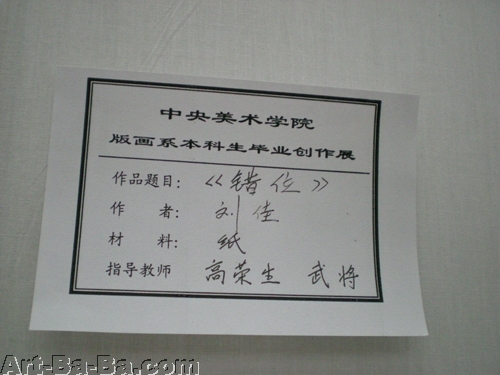 中央美术学院
版画系本科生毕业创作展
作品题目：《错位》
作 者：刘佳
材 料：纸
指导教师 高荣生 武将
Art-Ba-Ba.com